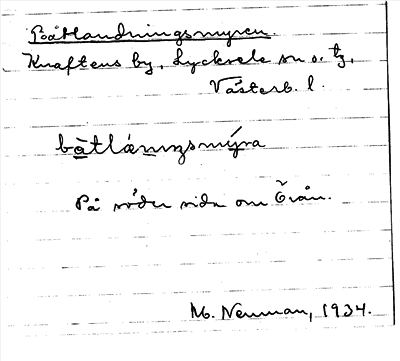 Båtlandningsmyren.
Knaftens by, Lycksele sn o. tg,
Västerb. l.
båtlánıŋsmýra
På södra sidan om Örån.
M. Neuman, 1934.